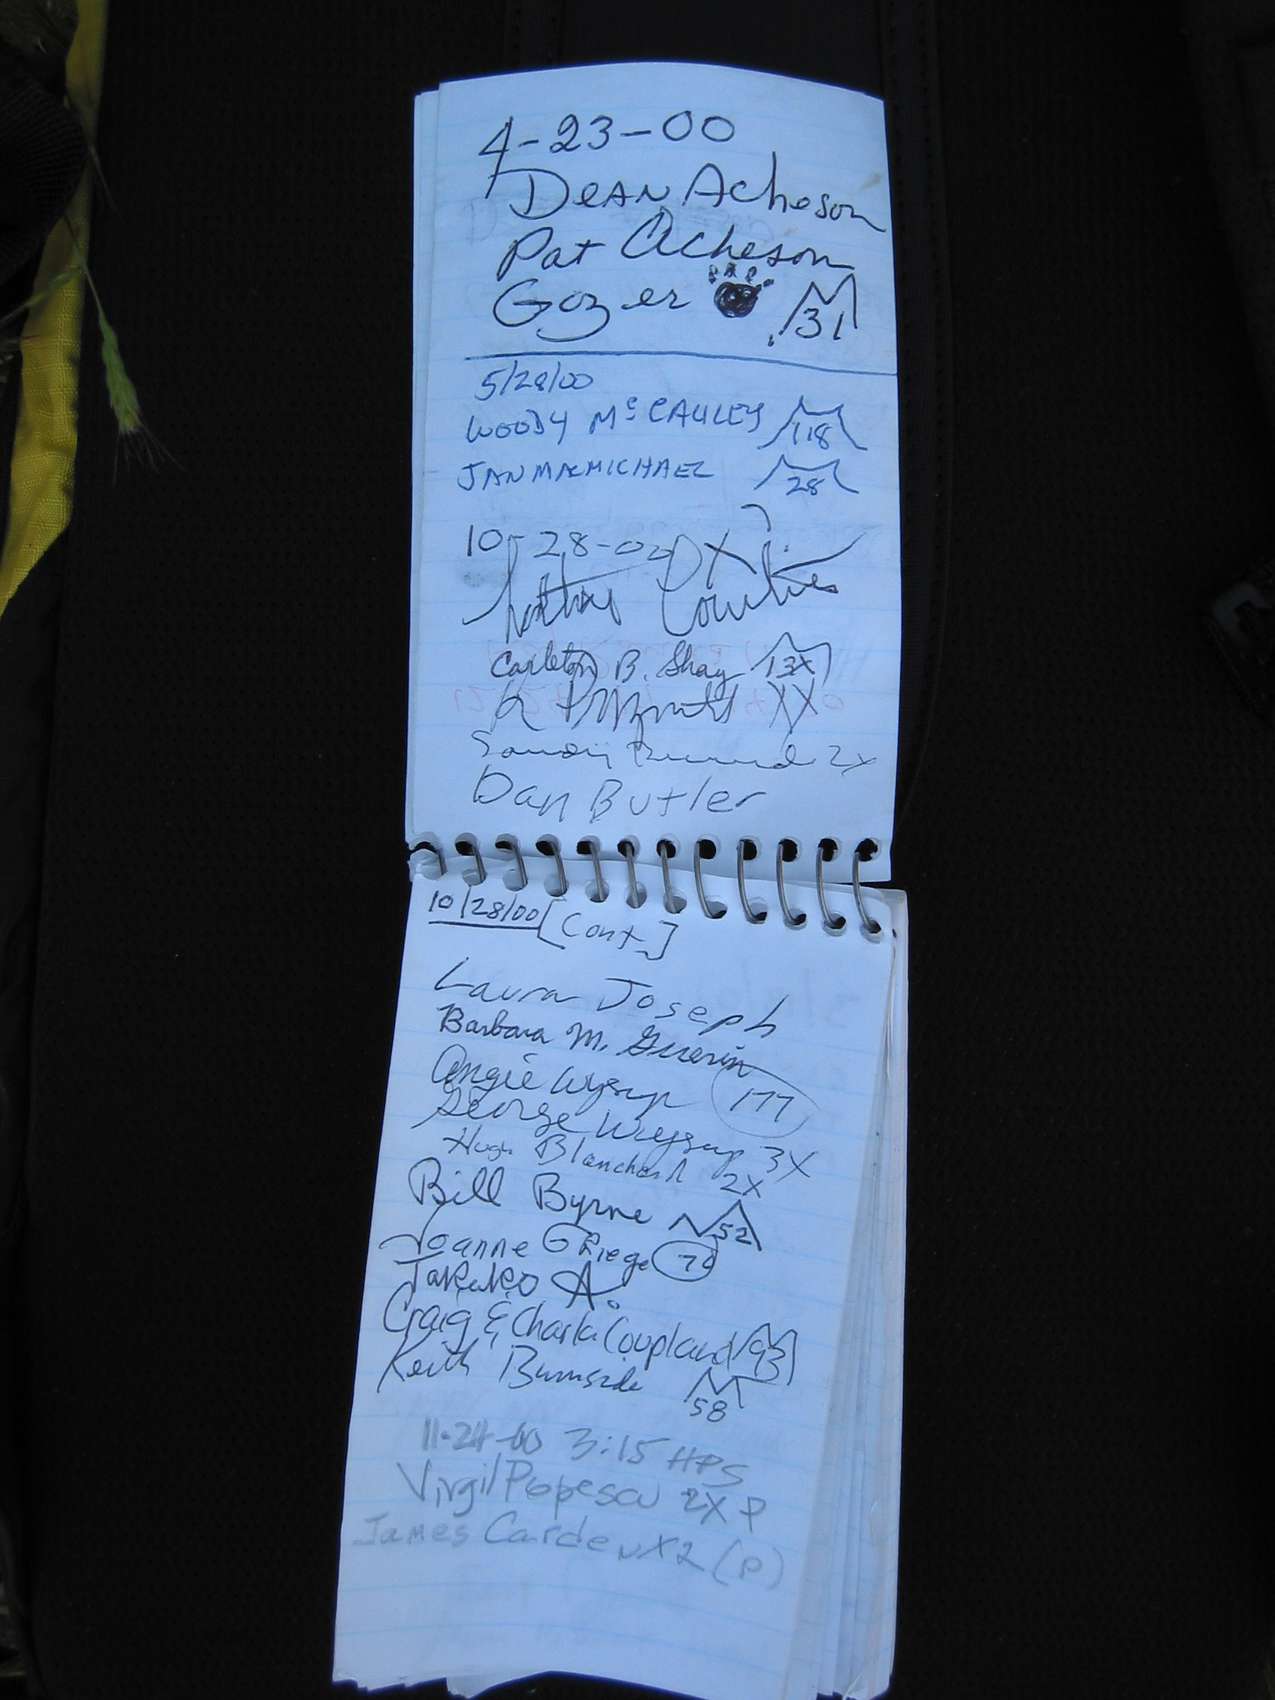 4-23-00
Dean Acheson
Pat Acheson
Gozer 31
5/28/00
WOODY McCAULEY 118
JAN MACMICHAEL 28
10-28-00
Carleton B. Shay 13X
XX
Sandy 2x
Dan Butler
10/28/00 [Cont.]
Laura Joseph
Barbara M. Guerin
Angie Wysup 177
George Wysup 3X
Hugh Blanchard 2X
Bill Byrne 52
Joanne Griego 70
Takeko A.
Craig & Charla Coupland 93
Keith Burnside 58
11-24-00 3:15 HPS
Virgil Popescu 2X P
James Carden X2 (P)